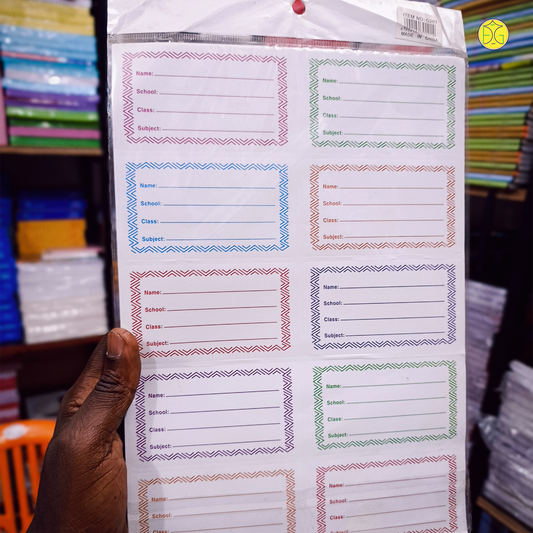 ITEM NO:
Name:
School:
Class:
Subject:
Name:
School:
Class:
Subject:
Name:
School:
Class:
Subject:
Name:
School:
Class:
Subject:
Name:
School:
Class:
Subject:
Name:
School:
Class:
Subject:
Name:
School:
Class:
Subject:
Name:
School:
Class:
Subject:
Name:
School:
Class:
Name:
School:
Class: